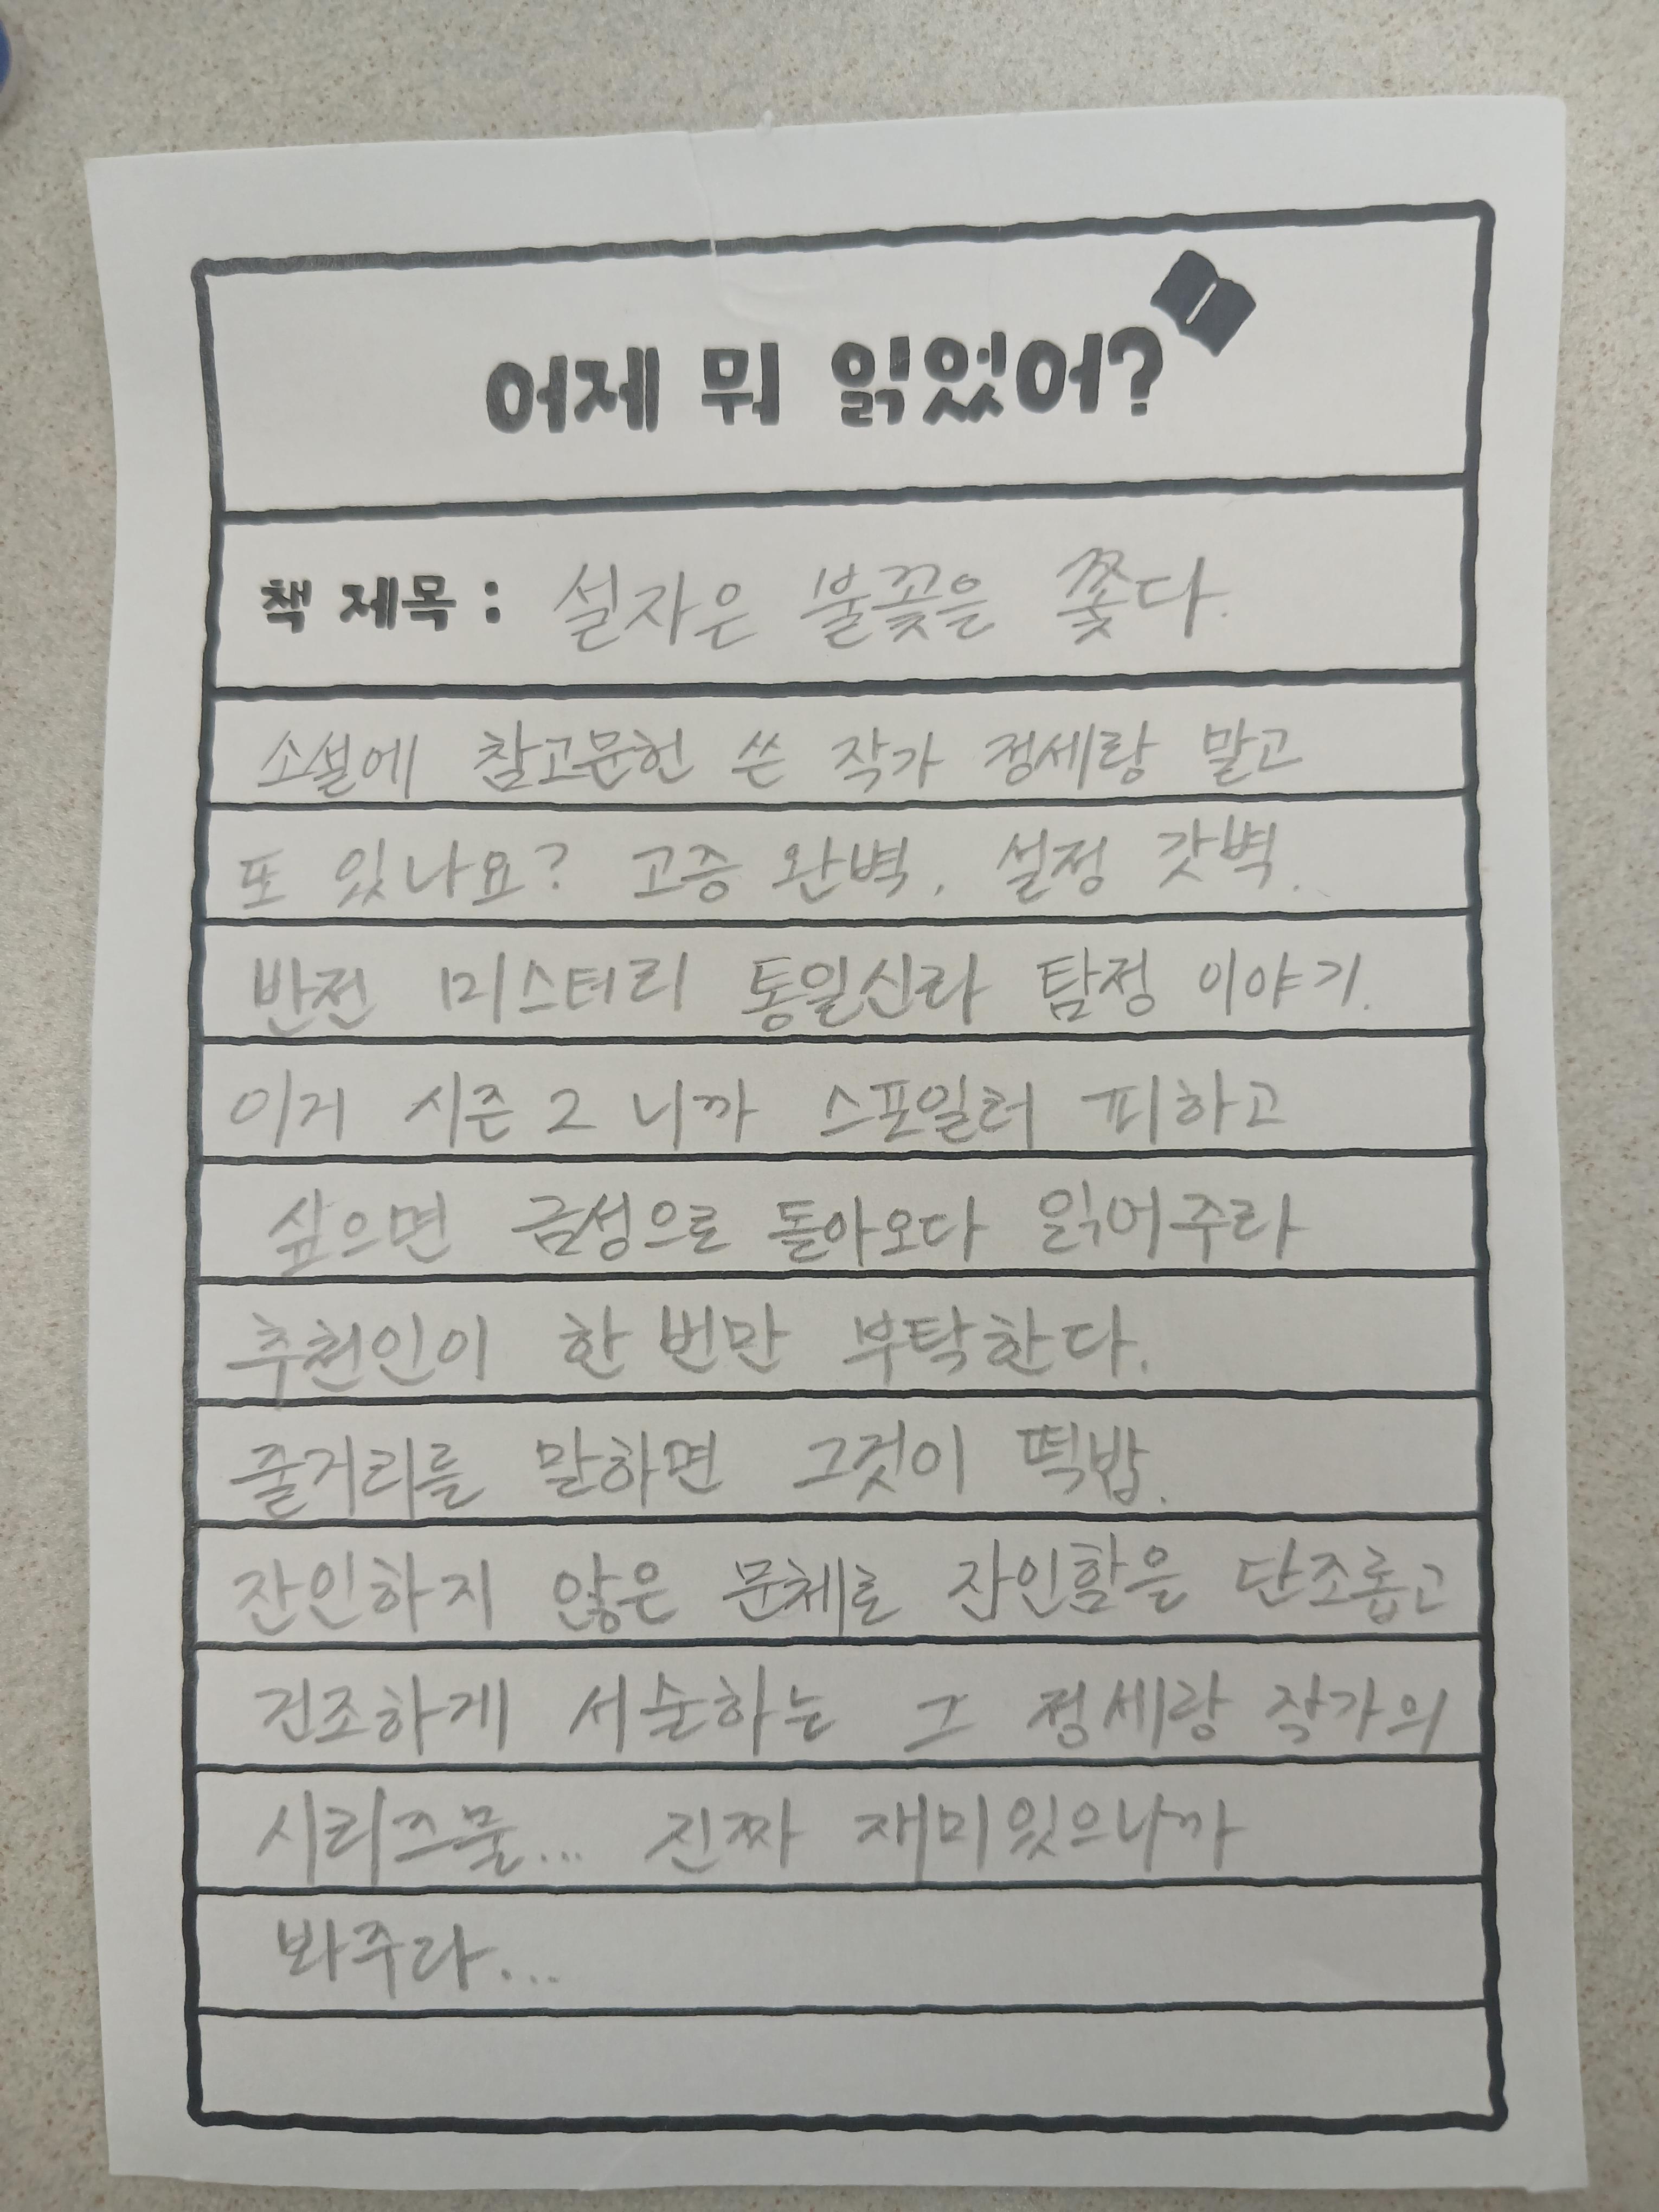 어제 뭐 읽었어?
책 제목 : 설자은 불꽃을 쫓다.
소설에 참고문헌 쓴 작가 정세랑 말고
또 있나요? 고증 완벽. 설정 갓벽.
반전 미스터리 통일신라 탐정 이야기.
이거 시즌2 니까 스포일러 피하고
싶으면 금성으로 돌아오다 읽어주라
추천인이 한 번만 부탁한다.
줄거리를 말하면 그것이 떡밥.
잔인하지 않은 문체로 잔인함을 단조롭고
건조하게 서술하는 그 정세랑 작가의
시리즈물... 진짜 재미있으니까
봐주라...